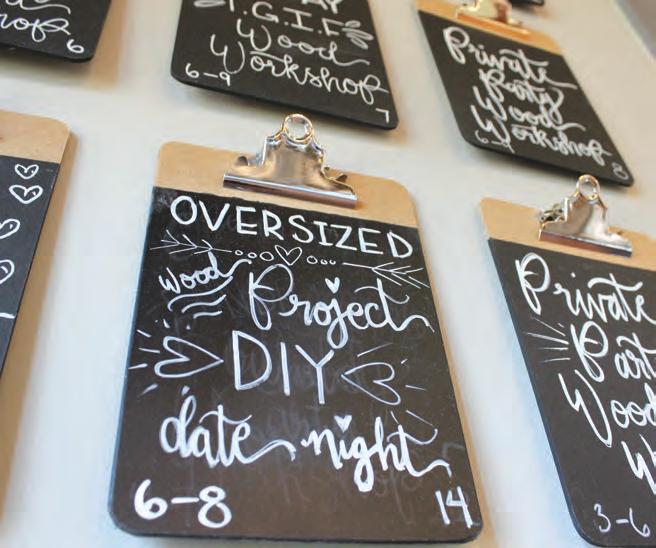 6
T.G.I.F
Wood
Workshop
6-9
7
Private
Party
Wood
Workshop
8
OVERSIZED
Wood
Project
DIY
date night
6-8 14
Private
Wood
3-6